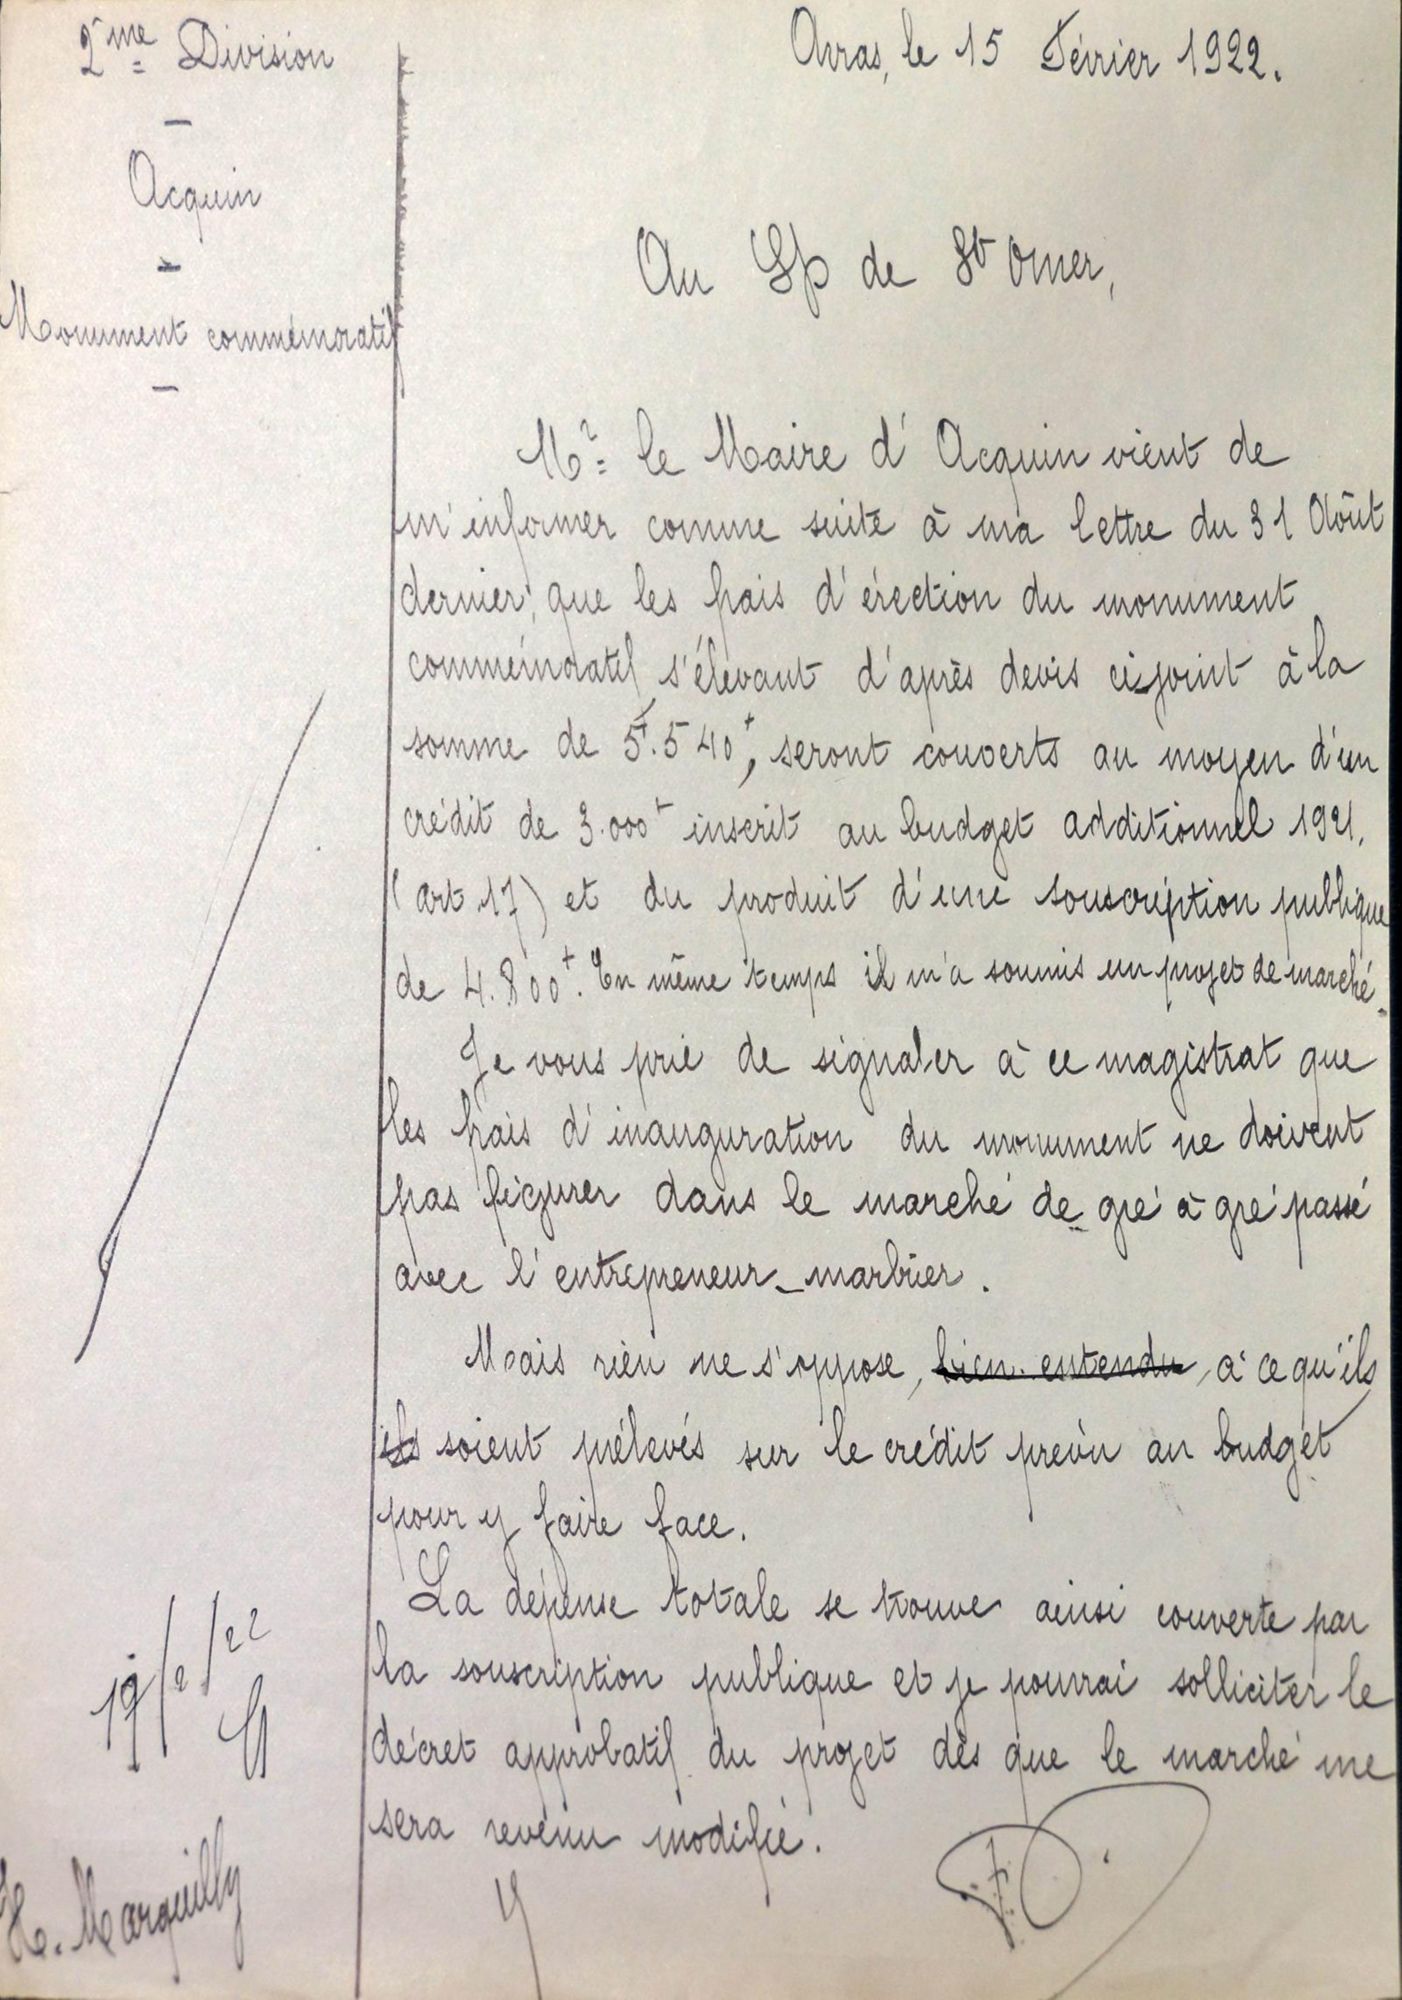 2me Division
Acquin
Monument commémoratif
Arras, le 15 Février 1922.
Au Sp de St Omer,
Mr le Maire d'Acquin vient de
m'informer comme suite à ma lettre du 31 Août
dernier, que les frais d'érection du monument
commémoratif s'élevant d'après devis ci-joint à la
somme de 5.540f, seront couverts au moyen d'un
crédit de 3.000f inscrit au budget additionnel 1921.
(art 17) et du produit d'une souscription publique
de 4.800f. En même temps il m'a soumis un projet de marché.
Je vous prie de signaler à ce magistrat que
les frais d'inauguration du monument ne doivent
pas figurer dans le marché de gré à gré passé
avec l'entrepreneur-marbrier.
Mais rien ne s'oppose, bien entendu, à ce qu'ils
ils soient prélevés sur le crédit prévu au budget
pour y faire face.
La dépense totale se trouve ainsi couverte par
la souscription publique et je pourrai solliciter le
décret approbatif du projet dès que le marché me
sera revenu modifié.
19/2/22
H. Marquilly